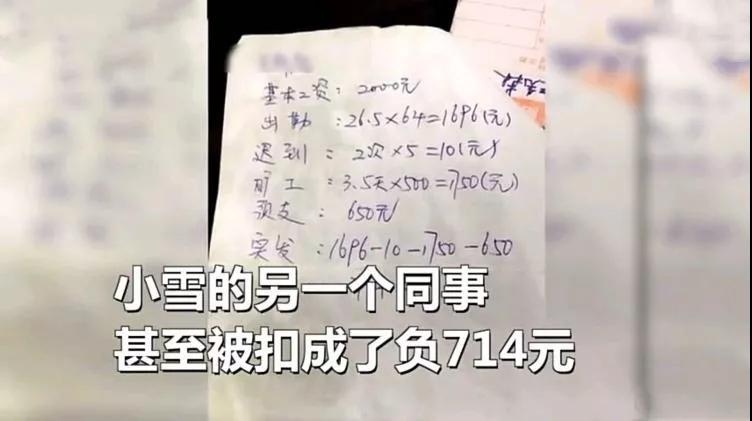 基本工资：2000元
出勤：26.5×64=1696(元)
迟到：2次×5=10(元)
旷工：3.5天×500=1750(元)
预支：650元
实发：1696-10-1750-650
小雪的另一个同事
甚至被扣成了负714元